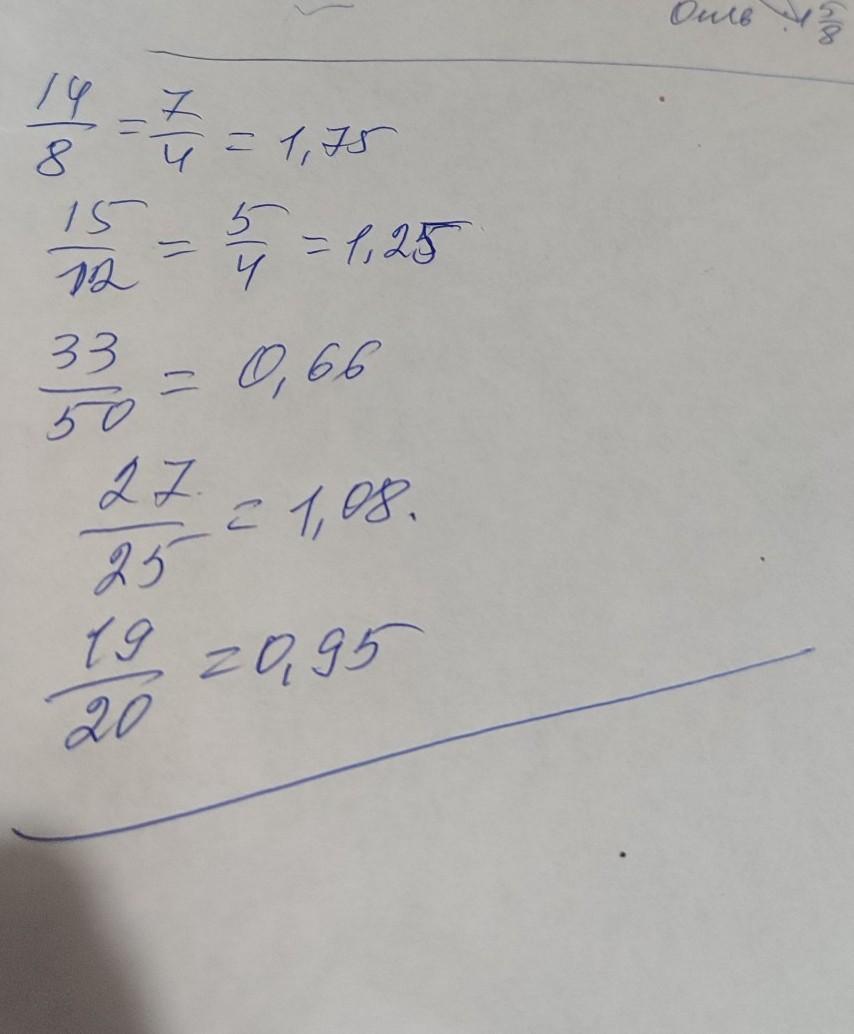 5/8
14/8 = 7/4 = 1,75
15/12 = 5/4 = 1,25
33/50 = 0,66
27/25 = 1,08.
19/20 = 0,95